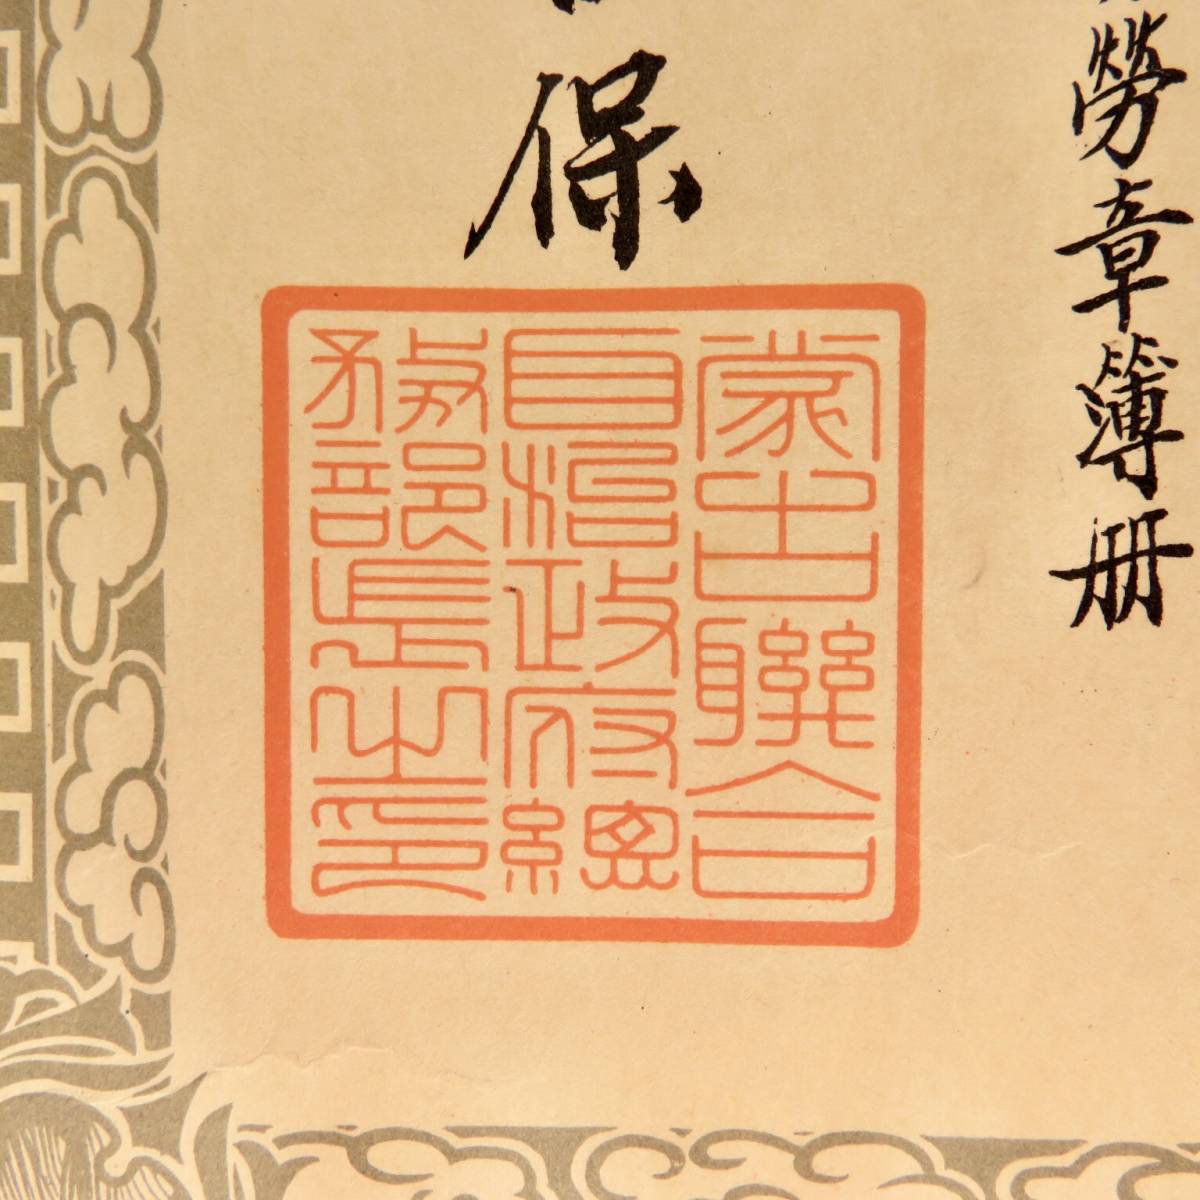 勞章簿册
保
蒙古聯合
自治政府總
務部長之印